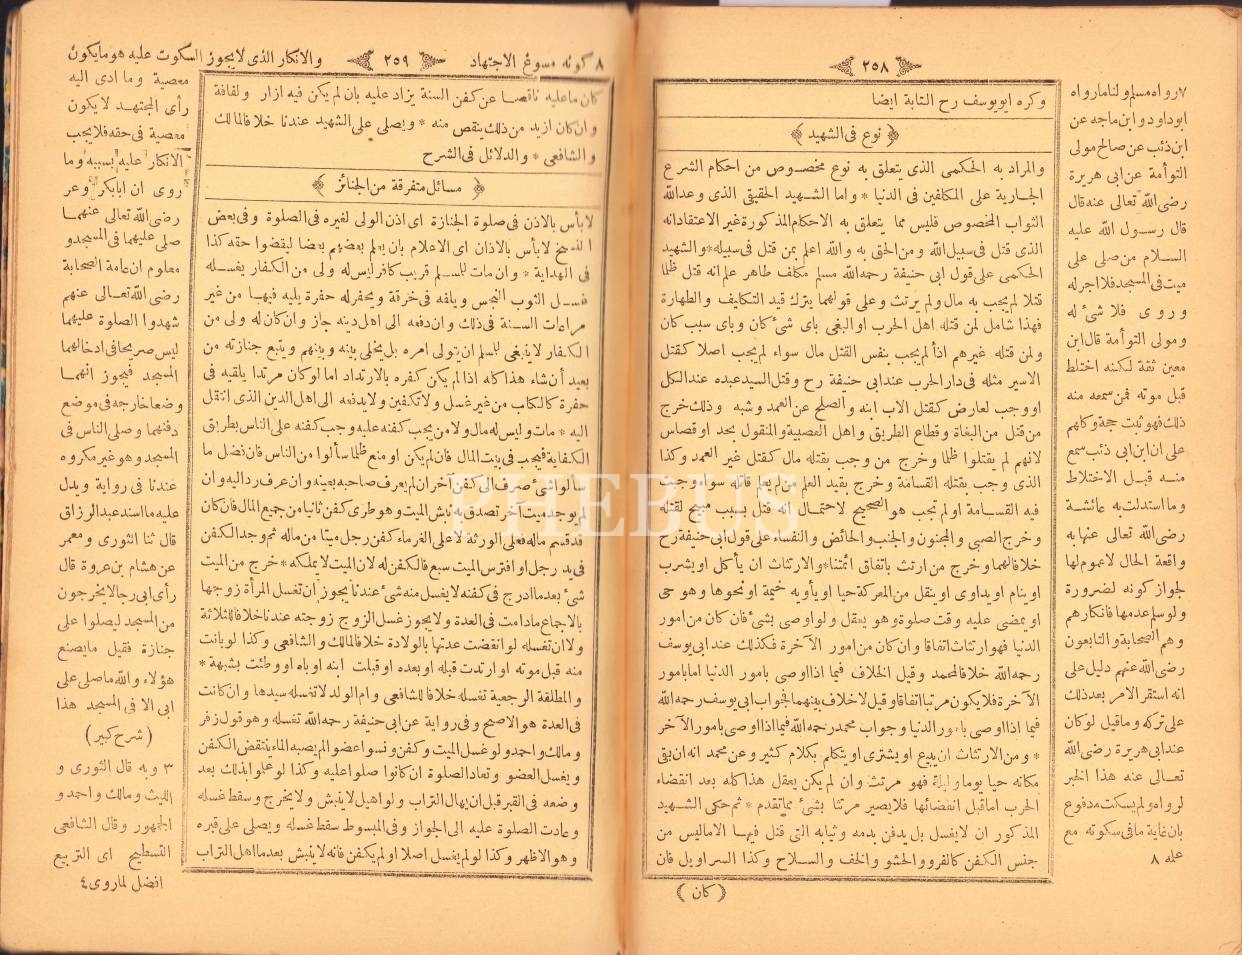 ٢٥٨
وكره ابو يوسف رح الثابة ايضا
﴿ نوع فى الشهيد ﴾
والمراد به الحكمى الذى يتعلق به نوع مخصوص من احكام الشرع
الجارية على المكلفين فى الدنيا * واما الشهيد الحقيقى الذى وعدالله
الثواب المخصوص فليس مما يتعلق به الاحكام المذكورة غير الاعتقاد انه
الذى قتل فى سبيل الله ومن الحق به والله اعلم بمن قتل فى سبيله * والشهيد
الحكمى على قول ابى حنيفة رحمه الله مسلم مكلف طاهر علم انه قتل ظلما
قتلا لم يجب به مال ولم يرتث وعلى قولهما يترك قيد التكليف والطهارة
فهذا شامل لمن قتله اهل الحرب او البغى باى شئ كان وباى سبب كان
ولمن قتله غيرهم اذا لم يجب بنفس القتل مال سواء لم يجب اصلا كقتل
الاسير مثله فى دار الحرب عند ابى حنيفة رح وقتل السيد عبده عند الكل
او وجب لعارض كقتل الاب ابنه والصلح عن العمد وشبه وذلك خرج
من قتل من البغاة وقطاع الطريق واهل العصبية والمنقول بحد او قصاس
لانهم لم يقتلوا ظلما وخرج من وجب بقتله مال كقتل غير العمد وكذا
الذى وجب بقتله القسامة وخرج بقيد العلم من لم يعلم قاتله سواء وجبت
فيه القسامة او لم تجب هو الصحيح لاحتمال انه قتل بسبب مبيح لقتله
وخرج الصبى والمجنون والجنب والحائض والنفساء على قول ابى حنيفة رح
خلافا لهما وخرج من ارتث باتفاق ائمتنا * والارتثاث ان يأكل او يشرب
او ينام او يداوى او ينقل من المعركة حيا او يأويه خيمة او نحوها وهو حى
او يمضى عليه وقت صلوة وهو يعقل ولو اوصى بشئ فان كان من امور
الدنيا فهو ارتثاث اتفاقا وان كان من امور الآخرة فكذلك عند ابى يوسف
رحمه الله خلافا لمحمد وقيل الخلاف فيما اذا اوصى بامور الدنيا اما بامور
الآخرة فلا يكون مرتثا اتفاقا وقيل لا خلاف بينهما فجواب ابى يوسف رحمه الله
فيما اذا اوصى بامور الدنيا وجواب محمد رحمه الله فيما اذا اوصى بامور الآخر
* ومن الارتثاث ان يبيع او يشترى او يتكلم بكلام كثير وعن محمد انه ان بقى
مكانه حيا يوما وليلة فهو مرتث وان لم يكن يعقل هذا كله بعد انقضاء
الحرب اما قبل انقضائها فلا يصير مرتثا بشئ مما تقدم * ثم حكى الشهيد
المذكور ان لا يغسل بل يدفن بدمه وثيابه التى قتل فيها الا ماليس من
جنس الكفن كالفرو والحشو والخف والسلاح وكذا السراويل فان
﴿ كان ﴾
٧ رواه مسلم ولنا مارواه
ابو داود وابن ماجه عن
ابن ذئب عن صالح مولى
التوأمة عن ابى هريرة
رضى الله تعالى عنه قال
قال رسول الله عليه
السلام من صلى على
ميت فى المسجد فلا اجر له
وروى فلا شئ له
ومولى التوأمة قال ابن
معين ثقة لكنه اختلط
قبل موته فمن سمعه منه
ذلك فهو ثبت حجة وكلهم
على ان ابن ابى ذئب سمع
منه قبل الاختلاط
وما استدلت به عائشة
رضى الله تعالى عنها به
واقعة الحال لا عموم لها
لجواز كونه لضرورة
ولو سلم عدمها فانكارهم
وهم الصحابة والتابعون
رضى الله عنهم دليل على
انه استقر الامر بعد ذلك
على تركه وما قيل لو كان
عند ابى هريرة رضى الله
تعالى عنه هذا الخبر
لرواه ولم يسكت مدفوع
بان غاية ما فى سكوته مع
عله ٨
٨ كونه مسوغ الاجتهاد ٢٥٩ والانكار الذى لا يجوز السكوت عليه هو ما يكون
كان ما عليه ناقصا عن كفن السنة يزاد عليه بان لم يكن فيه ازار ولفافة
وان كان ازيد من ذلك ينقص منه * ويصلى على الشهيد عندنا خلافا لمالك
والشافعى * والدلائل فى الشرح
﴿ مسائل متفرقة من الجنائز ﴾
لا بأس بالاذن فى صلوة الجنازة اى اذن الولى لغيره فى الصلوة وفى بعض
النسخ لا بأس بالاذان اى الاعلام بان يعلم بعضهم بعضا ليقضوا حقه كذا
فى الهداية * وان مات لمسلم قريب كافر ليس له ولى من الكفار يغسله
غسل الثوب النجس ويلفه فى خرقة ويحفر له حفرة يلقيه فيها من غير
مراعات السنة فى ذلك وان دفعه الى اهل دينه جاز وان كان له ولى من
الكفار لا ينبغى للمسلم ان يتولى امره بل يخلى بينه وبينهم ويتبع جنازته من
بعيد ان شاء هذا كله اذا لم يكن كفره بالارتداد اما لو كان مرتدا يلقيه فى
حفرة كالكلب من غير غسل ولا تكفين ولا يدفعه الى اهل الدين الذى انتقل
اليه * مات وليس له مال ولا من يجب كفنه عليه وجب كفنه على الناس بطريق
الكفاية فيجب فى بيت المال فان لم يكن او منع ظلما سألوا من الناس فان فضل ما
سألوا شئ صرف الى كفن آخر ان لم يعرف صاحبه بعينه وان عرف رد اليه وان
لم يوجد ميت آخر تصدق به نبش الميت وهو طرى كفن ثانيا من جميع المال فان كان
قد قسم ماله فعلى الورثة لا على الغرماء كفن رجل ميتا من ماله ثم وجد الكفن
فى يد رجل او افترس الميت سبع فالكفن له لان الميت لا يملكه * خرج من الميت
شئ بعد ما ادرج فى كفنه لا يغسل منه شئ عندنا يجوز ان تغسل المرأة زوجها
بالاجماع مادامت فى العدة ولا يجوز غسل الزوج زوجته عندنا خلافا للثلاثة
ولا ان تغسله لو انقضت عدتها بالولادة خلافا لمالك والشافعى وكذا لو بانت
منه قبل موته او ارتدت قبله او بعده او قبلت ابنه او باه او وطئت بشبهة *
والمطلقة الرجعية تغسله خلافا للشافعى وام الولد لا تغسله سيدها وان كانت
فى العدة هو الاصح وفى رواية عن ابى حنيفة رحمه الله تغسله وهو قول زفر
ومالك واحمد ولو غسل الميت وكفن ونسوا عضوا لم يصبه الماء ينتقض الكفن
ويغسل العضو وتعاد الصلوة ان كانوا صلوا عليه وكذا لو علموا بذلك بعد
وضعه فى القبر قبل ان يهال التراب ولو اهيل لا ينبش ولا يخرج وسقط غسله
وعادت الصلوة عليه الى الجواز وفى المبسوط سقط غسله ويصلى على قبره
وهو الاظهر وكذا لو لم يغسل اصلا او لم يكفن فانه لا ينبش بعد ما اهل التراب
معصية وما ادى اليه
رأى المجتهد لا يكون
معصية فى حقه فلا يجب
الانكار عليه بسببه وما
روى ان ابا بكر وعمر
رضى الله تعالى عنهما
صلى عليهما فى المسجد و
معلوم ان عامة الصحابة
رضى الله تعالى عنهم
شهدوا الصلوة عليهما
ليس صريحا فى ادخالهما
المسجد فيجوز انهما
وضعا خارجه فى موضع
دفنهما وصلى الناس فى
المسجد وهو غير مكروه
عندنا فى رواية ويدل
عليه ما اسند عبد الرزاق
قال ثنا الثورى ومعمر
عن هشام بن عروة قال
رأى ابى رجالا يخرجون
من المسجد ليصلوا على
جنازة فقيل ما يصنع
هؤلاء والله ما صلى على
ابى الا فى المسجد هذا
( شرح كبير )
٣ وبه قال الثورى و
الليث ومالك واحمد و
الجمهور وقال الشافعى
التسطيح اى التربيع
افضل لما روى ٤
PHEBUS